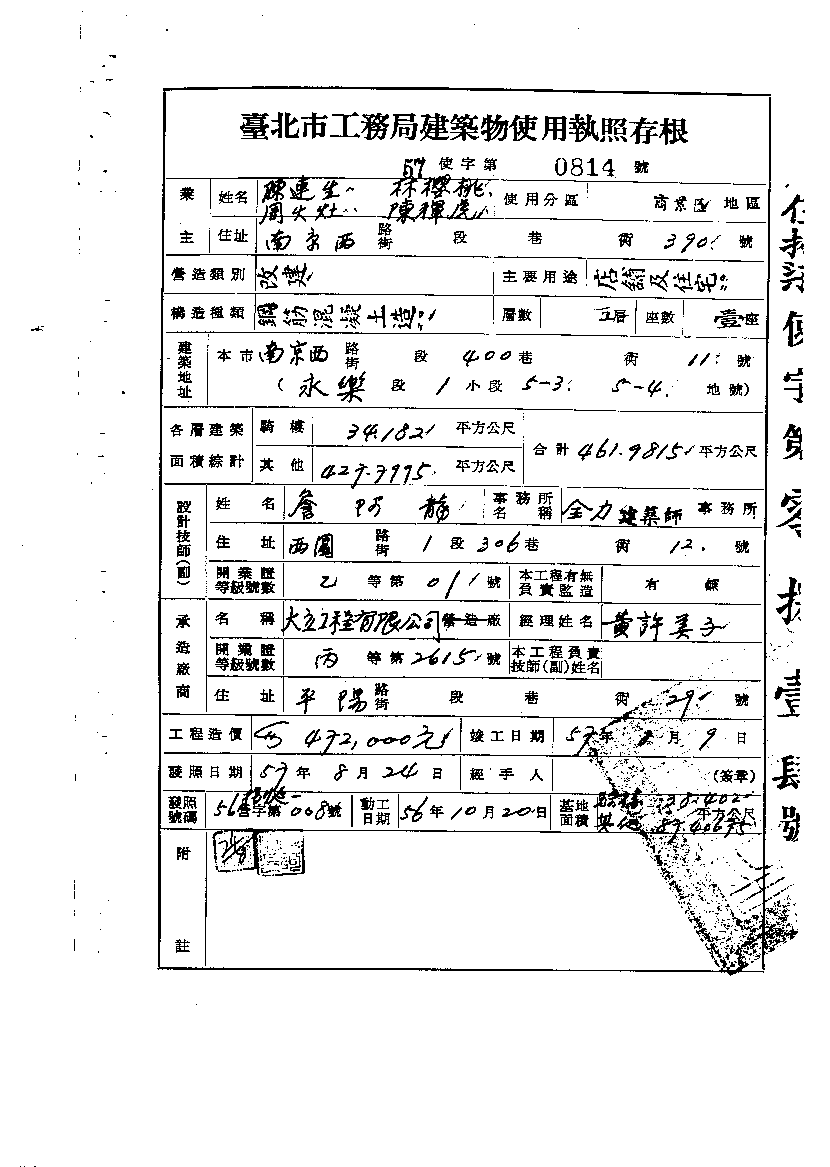 臺北市工務局建築物使用執照存根
57 使字第 0814 號
業主 姓名 陳連生 林櫻桃 周火灶 陳 使用分區 商業區 地區
住址 南京西 路街 段 巷 衖 390 號
營造類別 改建 主要用途 店舖及住宅
構造種類 鋼筋混凝土造 層數 五層 座數 壹座
建築地址 本市 南京西 路街 段 400 巷 衖 11 號
(永樂 段 1 小段 5-3 5-4 地號)
各層建築面積綜計 騎樓 34.1821 平方公尺 合計 461.9815 平方公尺
其他 平方公尺
設計技師(副) 姓名 詹 靜 事務所名稱 全力建築師 事務所
住址 西園 路街 1 段 306 巷 衖 12 號
開業證等級號數 乙 等第 011 號 本工程有無負責監造 有
承造廠商 名稱 大立工程有限公司 營造廠 經理姓名 黃許美子
開業證等級號數 丙 等第 2615 號 本工程負責技師(副)姓名
住址 平陽 路街 段 巷 衖 29 號
工程造價 472,000元 竣工日期 57 年 月 9 日
發照日期 57 年 8 月 24 日 經手人 (簽章)
發照號碼 56 營字第 008 號 動工日期 56 年 10 月 20 日 基地面積 騎樓 38.402 其他 平方公尺
附註
使字第零捌壹肆號